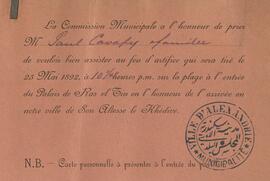 La Commission Municipale a l'honneur de prier
M Paul Cavafy & famille
de vouloir bien assister au feu d'artifice qui sera tiré le
25 Mai 1892, à 10 heures p.m. sur la plage à l'entrée
du Palais de Ras el Tin en l'honneur de l'arrivée en
notre ville de Son Altesse le Khédive.
N.B. - Carte personnelle à présenter à l'entrée du
VILLE D'ALEXANDRIE
MUNICIPALITÉ